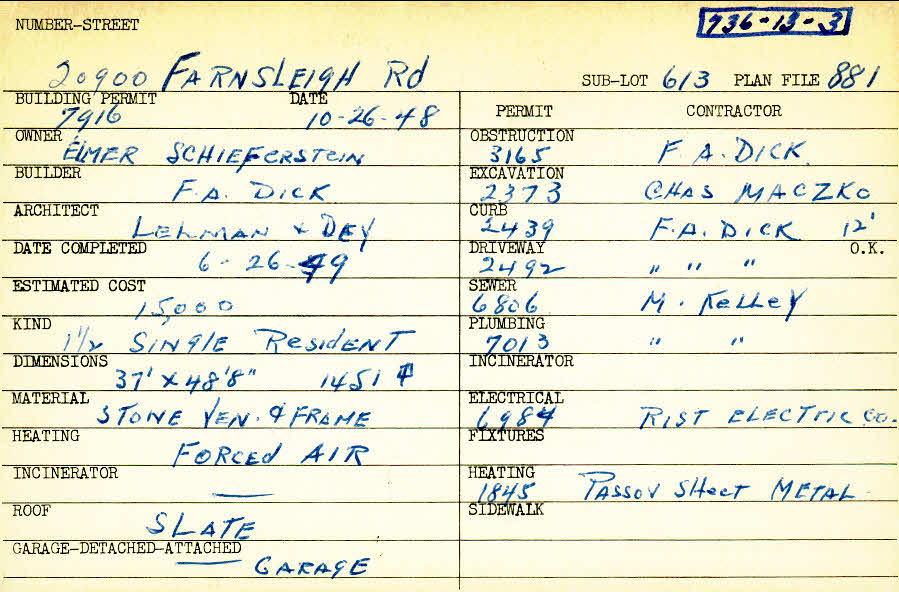 NUMBER-STREET
736-13-3
20900 FARNSLEIGH Rd
SUB-LOT 613 PLAN FILE 881
BUILDING PERMIT DATE
7916 10-26-48
OWNER
ELMER SCHIEFERSTEIN
BUILDER
F.A. DICK
ARCHITECT
LEHMAN & DEY
DATE COMPLETED
6-26-49
ESTIMATED COST
15,000
KIND
1 1/2 SINGLE ResidenT
DIMENSIONS
37' X 48'8" 1451
MATERIAL
STONE VEN. & FRAME
HEATING
FORCED AIR
INCINERATOR
—
ROOF
SLATE
GARAGE-DETACHED-ATTACHED
GARAGE
PERMIT CONTRACTOR
OBSTRUCTION
3165 F.A. DICK
EXCAVATION
2373 CHAS MACZKO
CURB
2439 F.A. DICK 12'
DRIVEWAY O.K.
2492 " " "
SEWER
6806 M. KelleY
PLUMBING
7013 " "
INCINERATOR
ELECTRICAL
6984 RIST ELECTRIC CO.
FIXTURES
HEATING
1845 PASSOV SHeeT METAL
SIDEWALK